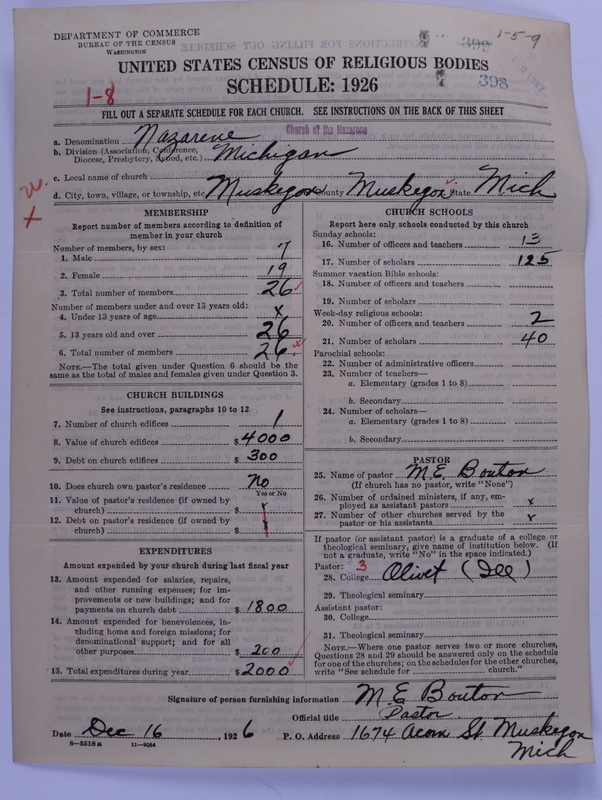 DEPARTMENT OF COMMERCE
BUREAU OF THE CENSUS
WASHINGTON
1-5-9
398
UNITED STATES CENSUS OF RELIGIOUS BODIES
SCHEDULE: 1926
398
1-8
FILL OUT A SEPARATE SCHEDULE FOR EACH CHURCH. SEE INSTRUCTIONS ON THE BACK OF THIS SHEET
Church of the Nazarene
a. Denomination Nazarene
b. Division (Association, Conference, Diocese, Presbytery, Synod, etc.) Michigan
c. Local name of church
d. City, town, village, or township, etc. Muskegon County Muskegon State Mich
MEMBERSHIP
Report number of members according to definition of
member in your church
Number of members, by sex:
1. Male 7
2. Female 19
3. Total number of members 26
Number of members under and over 13 years old:
4. Under 13 years of age x
5. 13 years old and over 26
6. Total number of members 26
NOTE.—The total given under Question 6 should be
same as the total of males and females given under Question 3.
CHURCH BUILDINGS
See instructions, paragraphs 10 to 12
7. Number of church edifices 1
8. Value of church edifices $ 4000
9. Debt on church edifices $ 300
10. Does church own pastor's residence No
Yes or No
11. Value of pastor's residence (if owned by
church) $ x
12. Debt on pastor's residence (if owned by
church) $ x
EXPENDITURES
Amount expended by your church during last fiscal year
13. Amount expended for salaries, repairs,
and other running expenses; for im-
provements or new buildings; and for
payments on church debt $ 1800
14. Amount expended for benevolences, in-
cluding home and foreign missions; for
denominational support; and for all
other purposes $ 200
15. Total expenditures during year $ 2000
CHURCH SCHOOLS
Report here only schools conducted by this church
Sunday schools:
16. Number of officers and teachers 13
17. Number of scholars 125
Summer vacation Bible schools:
18. Number of officers and teachers
19. Number of scholars
Week-day religious schools:
20. Number of officers and teachers 2
21. Number of scholars 40
Parochial schools:
22. Number of administrative officers
23. Number of teachers—
a. Elementary (grades 1 to 8)
b. Secondary
24. Number of scholars—
a. Elementary (grades 1 to 8)
b. Secondary
PASTOR
25. Name of pastor M. E. Bouton
(If church has no pastor, write "None")
26. Number of ordained ministers, if any, em-
ployed as assistant pastors x
27. Number of other churches served by the
pastor or his assistants x
If pastor (or assistant pastor) is a graduate of a college or
theological seminary, give name of institution below. (If
not a graduate, write "No" in the space indicated.)
Pastor: 3
28. College Olivet (Ill)
29. Theological seminary
Assistant pastor:
30. College
31. Theological seminary
NOTE.—Where one pastor serves two or more churches,
Questions 28 and 29 should be answered only on the schedule
for one of the churches; on the schedules for the other churches,
write "See schedule for church."
Signature of person furnishing information M E Bouton
Official title Pastor
Date Dec 16, 1926 P. O. Address 1674 Acorn St. Muskegon
Mich
8-5518 a 11-9024